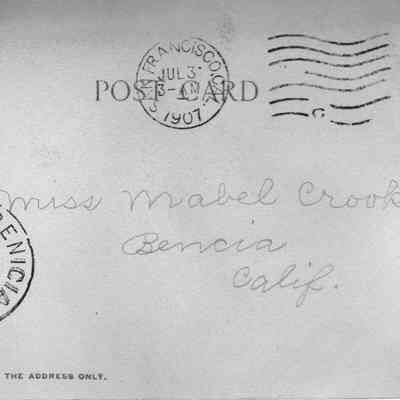 SAN FRANCISCO, CAL.
JUL 3
3-AM
1907
C
POST CARD
Miss Mabel Crook
Bencia
Calif.
BENICIA
THE ADDRESS ONLY.